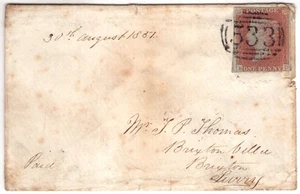 30th August 1851.
POSTAGE
533
ONE PENNY
Mr J. P. Thomas
Brixton Villa
Brixton
Surrey
Paid